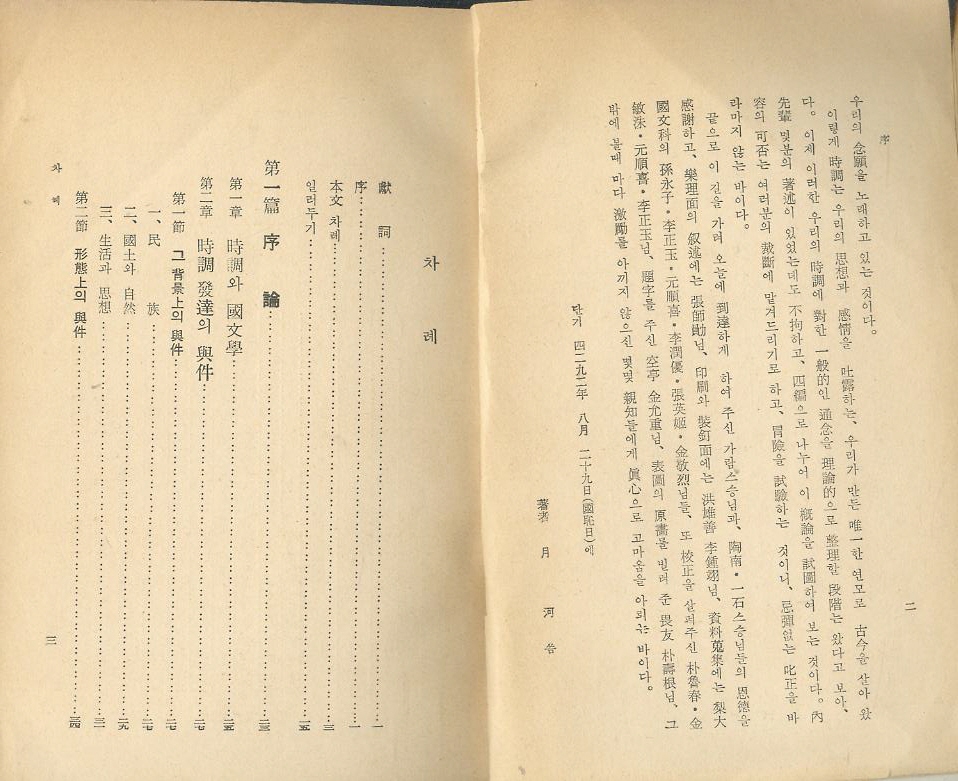 序
二
우리의 念願을 노래하고 있는 것이다。
이렇게 時調는 우리의 思想과 感情을 吐露하는、우리가 만든 唯一한 연모로 古今을 살아 왔
다。이제 이러한 우리의 時調에 對한 一般的인 通念을 理論的으로 整理할 段階는 왔다고 보아、
先輩 몇분의 著述이 있었는데도 不拘하고、四編으로 나누어 이 槪論을 試圖하여 보는 것이다。內
容의 可否는 여러분의 裁斷에 맡겨드리기로 하고、冒險을 試驗하는 것이니、忌憚없는 叱正을 바
라마지 않는 바이다。
끝으로 이 길을 가려 오늘에 到達하게 하여 주신 가람스승님과、陶南・一石스승님들의 恩德을
感謝하고、樂理面의 叙述에는 張師勛님、印刷와 裝釘面에는 洪雄善 李鍾翊님、資料蒐集에는 梨大
國文科의 孫永子・李正玉・元順喜・李潤優・張英姬・金敬烈님들、또 校正을 살펴주신 朴魯春・金
敏洙・元順喜・李正玉님、題字를 주신 空亭 金允重님、表圖의 原畵를 빌려 준 畏友 朴壽根님、그
밖에 볼때 마다 激勵를 아끼지 않으신 몇몇 親知들에게 眞心으로 고마움을 아뢰는 바이다。
단기 四二九二年 八月 二十九日(國恥日)에
著者 月 河 告
차 례
獻 詞 一
序 一
本文 차례 三
일러두기 一五
第一篇 序 論 二三
第一章 時調와 國文學 二五
第二章 時調 發達의 與件 二七
第一節 그 背景上의 與件 二七
一、民 族 二七
二、國土와 自然 二九
三、生活과 思想 三一
第二節 形態上의 與件 三四
차 례
三